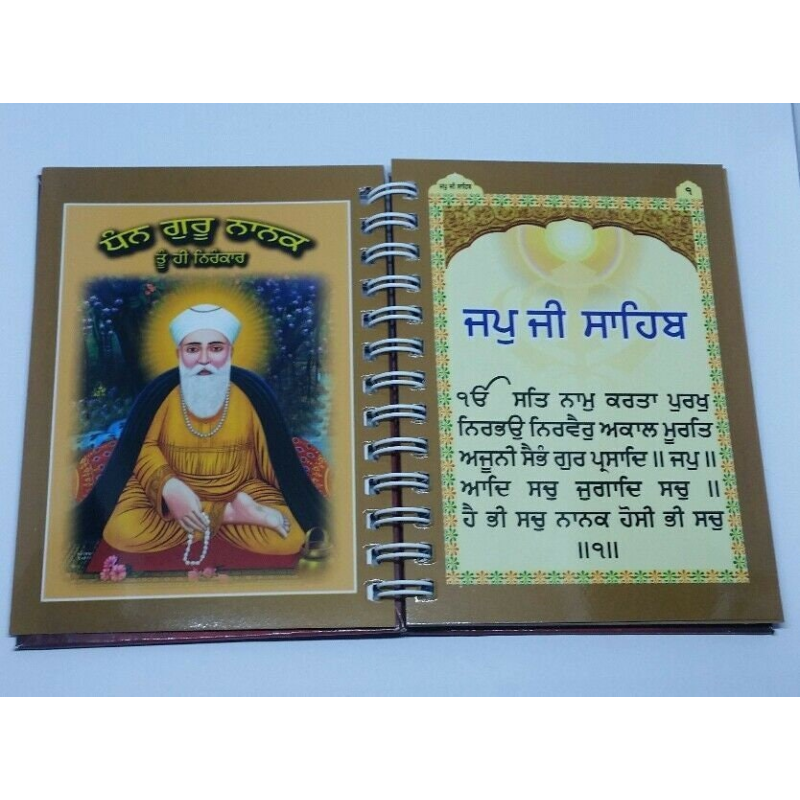 ਧੰਨ ਗੁਰੂ ਨਾਨਕ
ਤੂੰ ਹੀ ਨਿਰੰਕਾਰ
ਜਪੁ ਜੀ ਸਾਹਿਬ
੧
ਜਪੁ ਜੀ ਸਾਹਿਬ
ੴ ਸਤਿ ਨਾਮੁ ਕਰਤਾ ਪੁਰਖੁ
ਨਿਰਭਉ ਨਿਰਵੈਰੁ ਅਕਾਲ ਮੂਰਤਿ
ਅਜੂਨੀ ਸੈਭੰ ਗੁਰ ਪ੍ਰਸਾਦਿ ॥ ਜਪੁ ॥
ਆਦਿ ਸਚੁ ਜੁਗਾਦਿ ਸਚੁ ॥
ਹੈ ਭੀ ਸਚੁ ਨਾਨਕ ਹੋਸੀ ਭੀ ਸਚੁ
॥੧॥